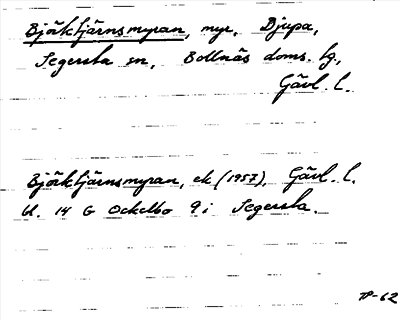 Björktjärnsmyran, myr, Djupa,
Segersta sn, Bollnäs doms. tg,
Gävl. l.
Björktjärnsmyran, ek (1957), Gävl. l.
bl. 14 G Ockelbo 9 i Segersta.
TP-62